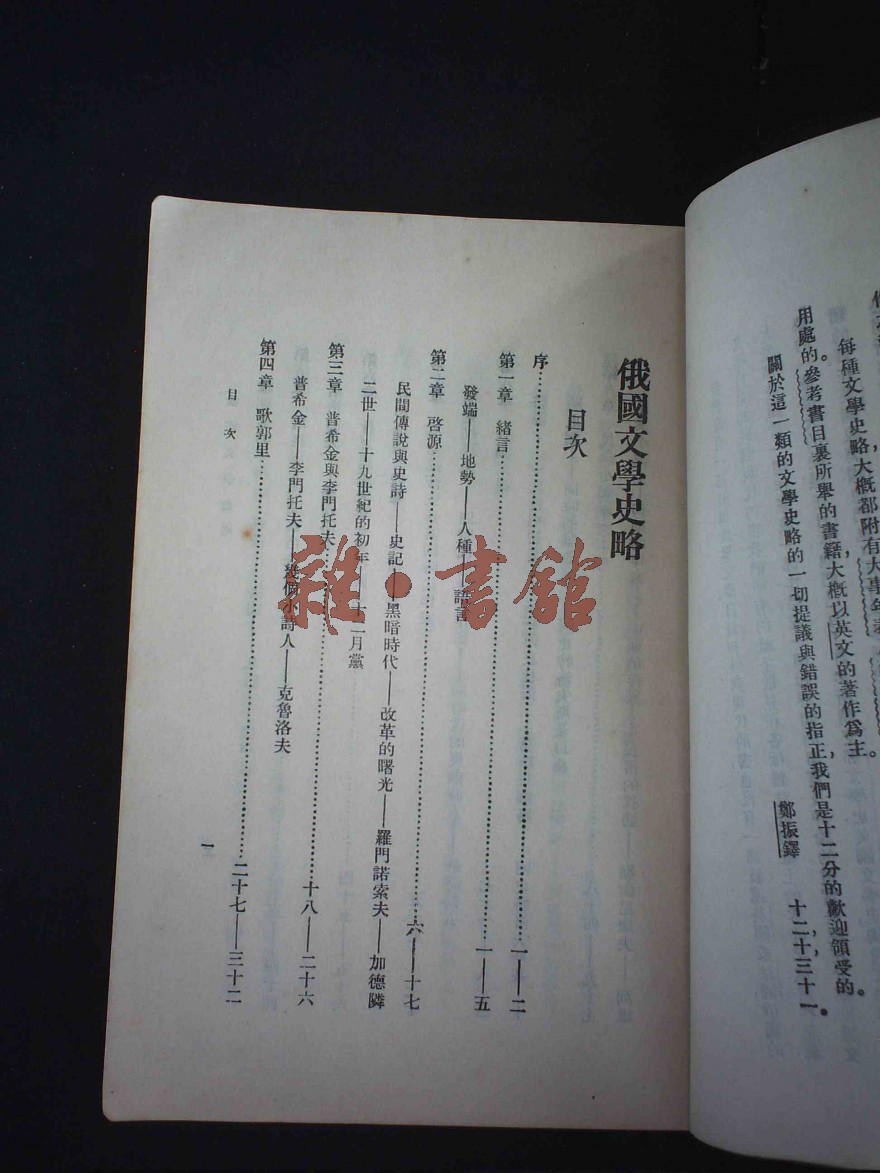 每種文學史略大槪都附有大事年表
用處的。參考書目裏所舉的書籍，大槪以英文的著作爲主。
關於這一類的文學史略的一切提議與錯誤的指正，我們是十二分的歡迎領受的。
鄭振鐸　十二，十二，三十一。
俄國文學史略
目次
序……一——二
第一章　緒言……一——五
發端——地勢——人種——語言
第二章　啓源……六——十七
民間傳說與史詩——史記——黑暗時代——改革的曙光——羅門諾索夫——加德隣
二世——十九世紀的初年——十二月黨
第三章　普希金與李門托夫……十八——二十六
普希金——李門托夫——幾個小詩人——克魯洛夫
第四章　歌郭里……二十七——三十二
目次
一
雜·書館